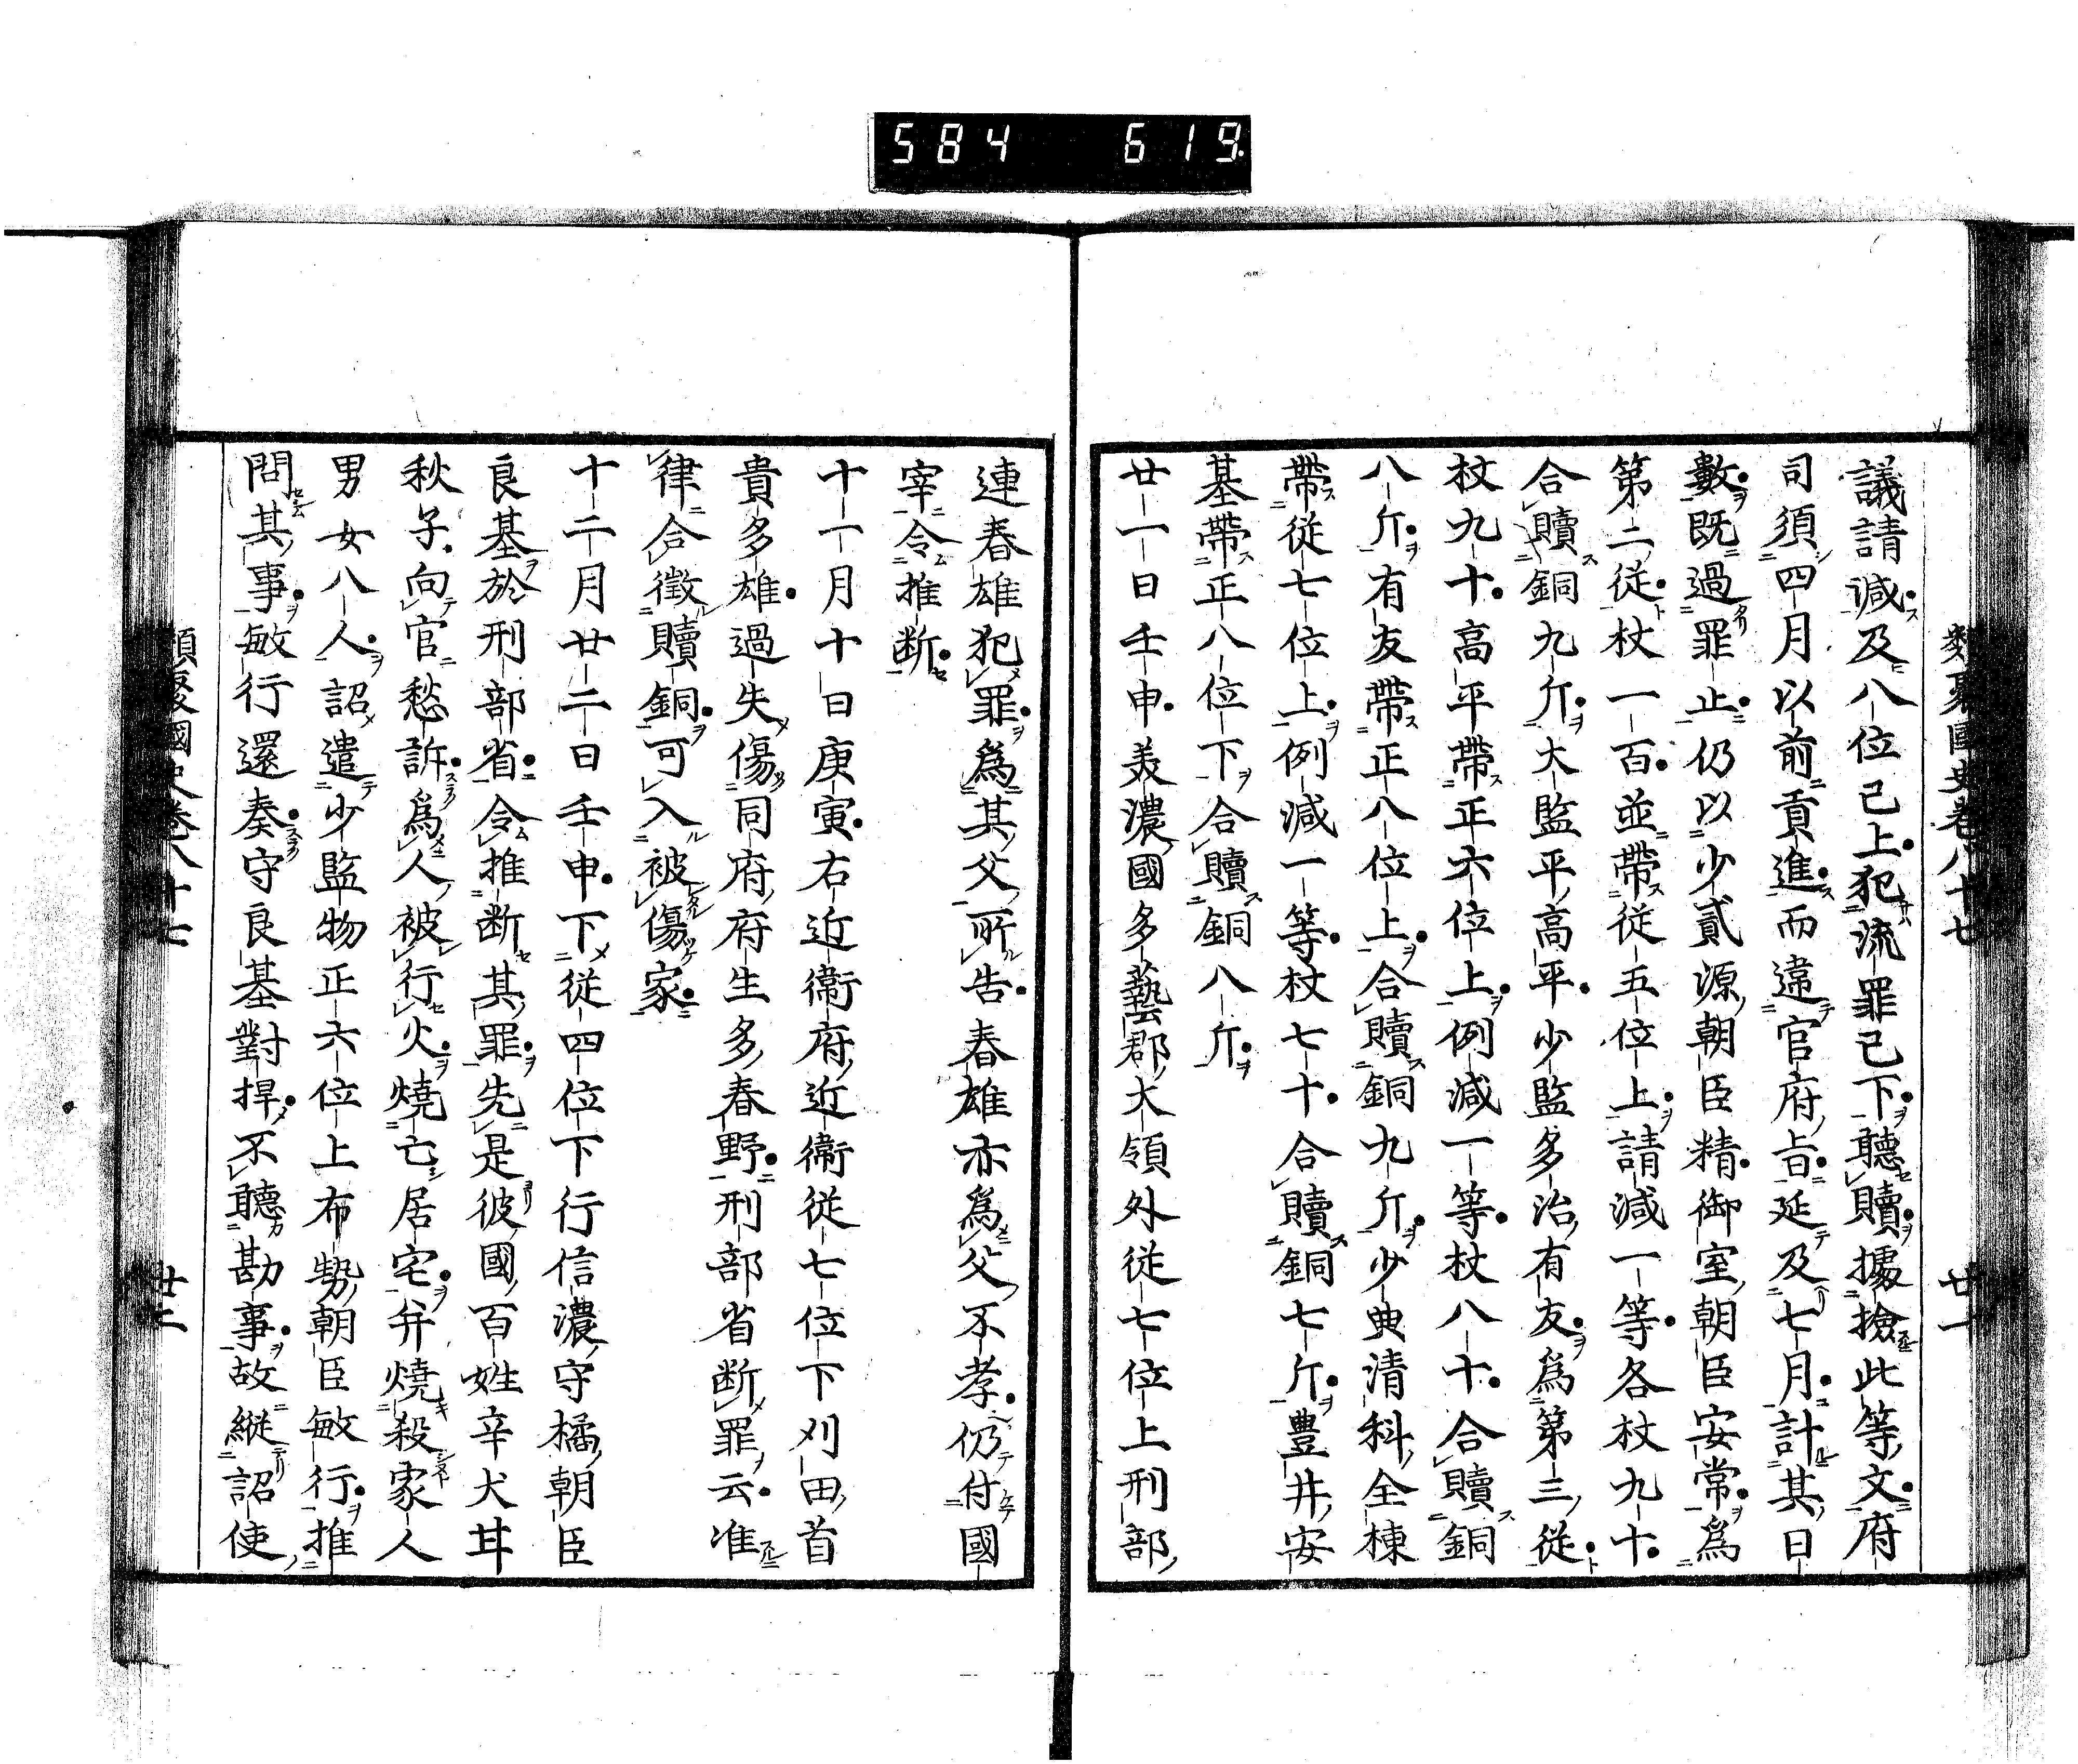 584 619
類聚國史卷八十七 廿一
議請減及八位已上犯流罪已下聽贖據檢此等文府
司須四月以前貢進而違官府旨延及七月計其日
數既過罪止仍以少貳源朝臣精御室朝臣安常爲
第二從杖一百並帶從五位上請減一等各杖九十
合贖銅九斤大監平高平少監多治有友爲第三從
杖九十高平帶正六位上例減一等杖八十合贖銅
八斤有友帶正八位上合贖銅九斤少典清科全棟
帶從七位上例減一等杖七十合贖銅七斤豊井安
基帶正八位下合贖銅八斤
廿一日壬申美濃國多藝郡大領外從七位上刑部
連春雄犯罪爲其父所告春雄亦爲父不孝仍付國
宰令推断
十一月十日庚寅右近衞府近衞從七位下刈田首
貴多雄過失傷同府府生多春野刑部省断罪云准
律合徴贖銅可入被傷家
十二月廿二日壬申下從四位下行信濃守橘朝臣
良基於刑部省令推断其罪先是彼國百姓辛犬甘
秋子向官愁訴爲人被行火燒亡居宅弁燒殺家人
男女八人詔遣少監物正六位上布勢朝臣敏行推
問其事敏行還奏守良基對捍不聽勘事故縱詔使
類聚國史卷八十七 廿二